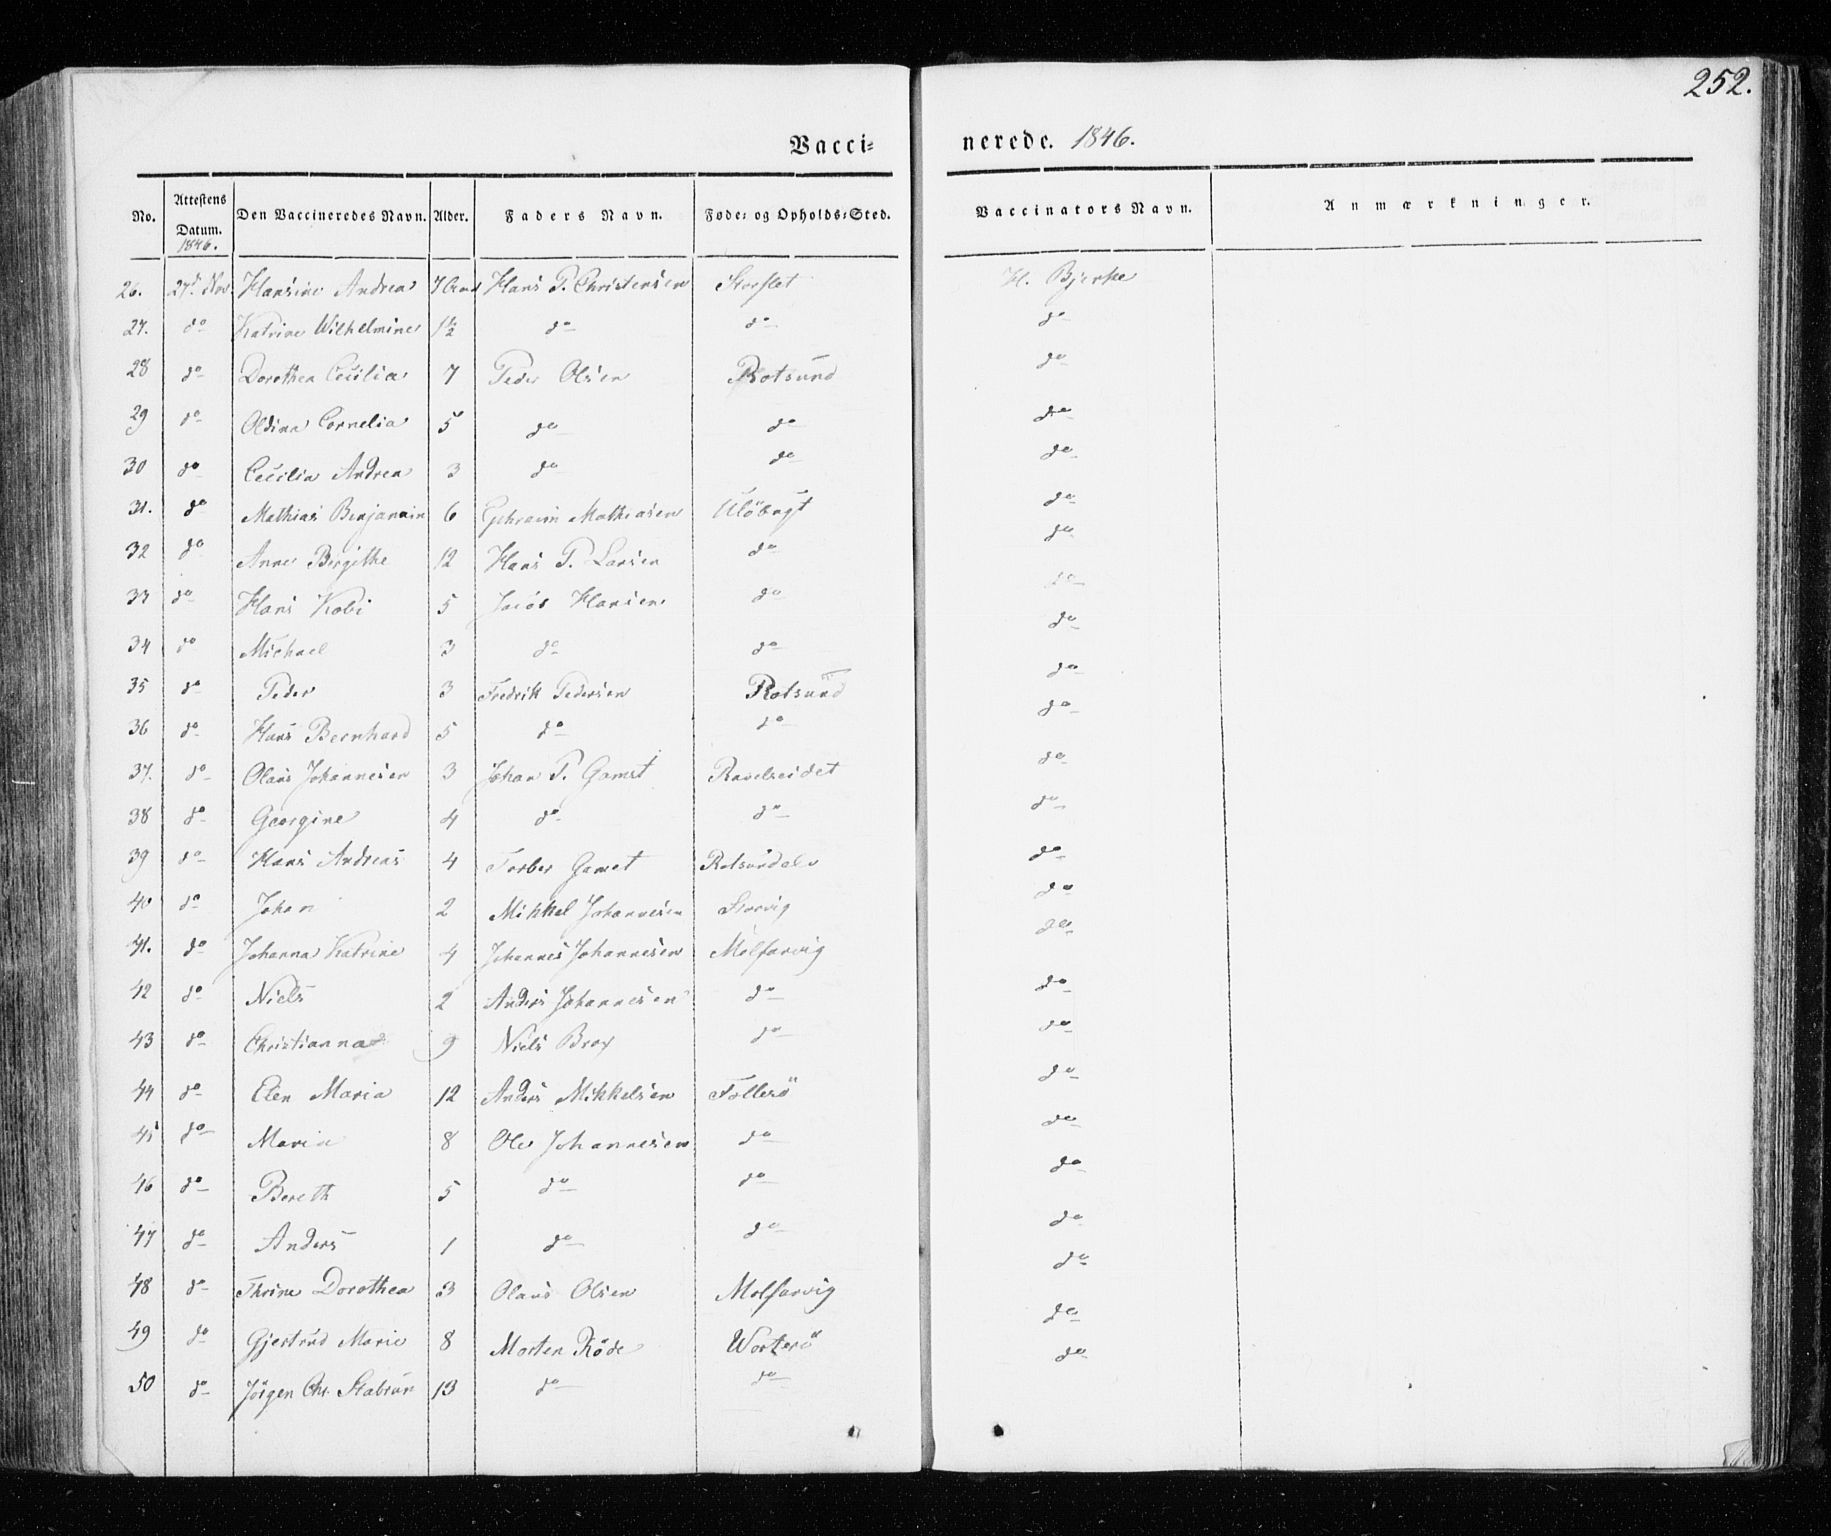 252.
Vacci= nerede. 1846.
No. Attestens Datum. 1846. Den Vaccineredes Navn. Alder. Faders Navn. Føde= og Opholds=Sted. Vaccinators Navn. Anmærkninger.
26. 27d Nov. Hansine Andrea 7 Hans P. Christensen Storslet H. Bjerke
27. do Katrine Wilhelmine 1½ do do do
28 do Dorothea Cecilia 7 Peder Olsen Rotsund do
29 do Oldina Cornelia 5 do do do
30 do Cecilia Andrea 3 do do do
31. do Mathias Benjamin 6 Ephraim Mathiasen Ulöbugt do
32 do Anne Birgithe 12 Hans P. Larsen do do
33 do Hans Kobi 5 Jacob Hansen do do
34 do Michael 3 do do do
35 do Peder 3 Fredrik Pedersen Rotsund do
36 do Hans Bernhard 5 do do do
37. do Olaus Johannesen 3 Johan P. Gamst Ravelseidet do
38 do Georgine 4 do do do
39 do Hans Andreas 4 Torber Gamst Rotsundelv do
40 do Johan 2 Mikkel Johannesen Storvig do
41. do Johanna Katrine 4 Johannes Johannesen Molfarvig do
42 do Niels 2 Anders Johannesen do do
43 do Christianna 9 Niels Brox do do
44 do Elen Maria 12 Anders Mikkelsen Follesö do
45 do Maria 8 Ole Johannesen do do
46 do Bereth 5 do do do
47 do Anders 1 do do do
48 do Thrine Dorothea 3 Olaus Olsen Molfarvig do
49 do Gjertrud Marie 8 Morten Röde Worterö do
50 do Jörgen Chr. Stabrun 13 do do do